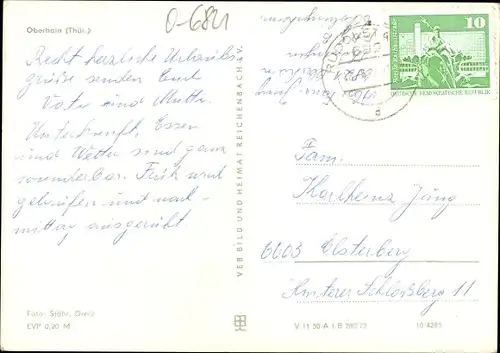 Oberhain (Thür.)
0-6821
Recht herzliche Urlaubs-
grüße senden Euch
Vati und Mutti.
Unterkunft, Essen
und Wetter sind ganz
wunderbar. Früh wird
gelaufen und nach-
mittag ausgeruht
Foto: Stöhr, Greiz
EVP 0,20 M
VEB BILD UND HEIMAT REICHENBACH i.V.
10
DEUTSCHE DEMOKRATISCHE REPUBLIK
Fam.
Karlheinz Jung
6603 Elsterberg
Hinterer Schloßberg 11
V 11 50 A 1 B